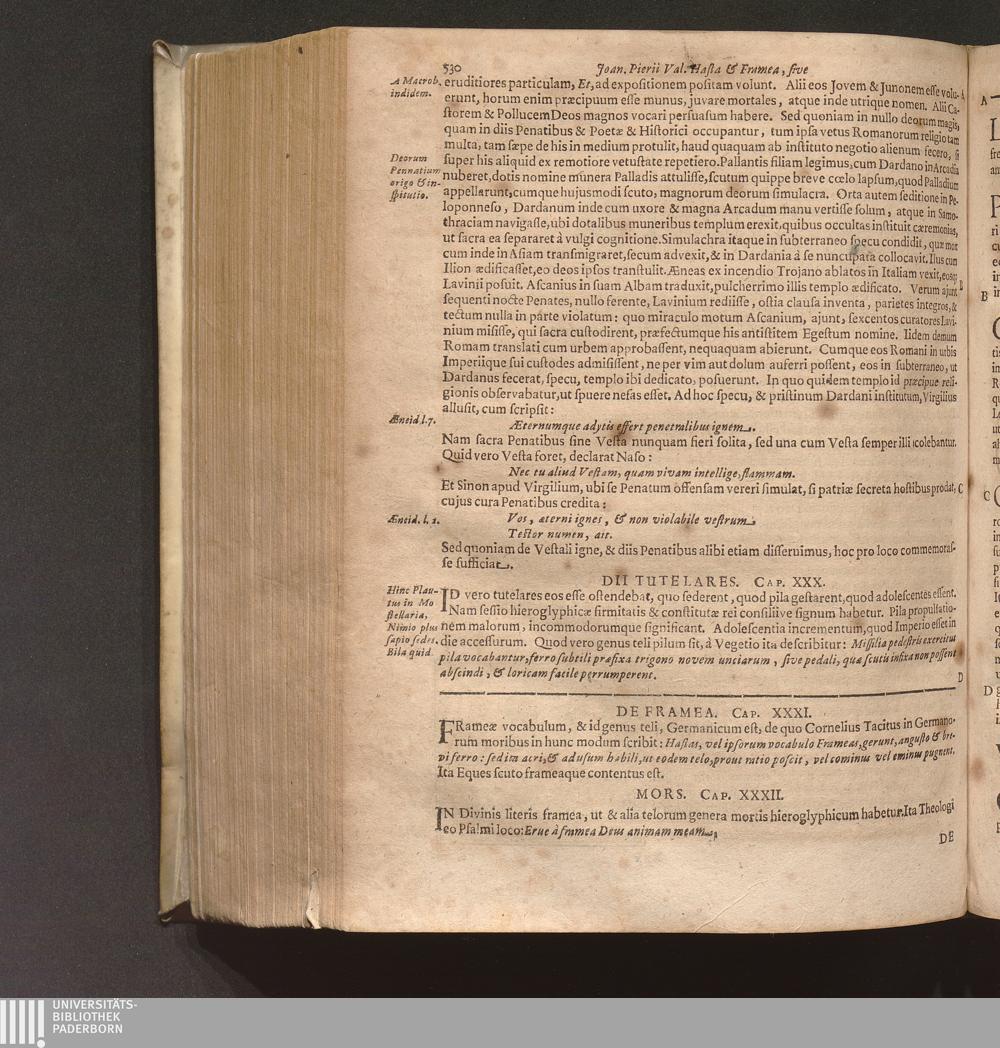 530 Joan. Pierii Val. Hasta & Framea, sive
A Macrob. indidem.
eruditiores particulam, Et, ad expositionem positam volunt. Alii eos Jovem & Junonem esse volu-
erunt, horum enim præcipuum esse munus, juvare mortales, atque inde utrique nomen. Alii Ca-
storem & Pollucem Deos magnos vocari persuasum habere. Sed quoniam in nullo deorum magis,
quam in diis Penatibus & Poetæ & Historici occupantur, tum ipsa vetus Romanorum religio tam
multa, tam sæpe de his in medium protulit, haud quaquam ab instituto negotio alienum fecero, si
Deorum Pennatium origo & in-stitutio.
super his aliquid ex remotiore vetustate repetiero. Pallantis filiam legimus, cum Dardano in Arcadia
nuberet, dotis nomine munera Palladis attulisse, scutum quippe breve cœlo lapsum, quod Palladium
appellarunt, cumque hujusmodi scuto, magnorum deorum simulacra. Orta autem seditione in Pe-
loponneso, Dardanum inde cum uxore & magna Arcadum manu vertisse solum, atque in Samo-
thraciam navigasse, ubi dotalibus muneribus templum erexit, quibus occultas instituit cæremonias,
ut sacra ea separaret à vulgi cognitione. Simulachra itaque in subterraneo specu condidit, quæ mox
cum inde in Asiam transmigraret, secum advexit, & in Dardania à se nuncupata collocavit. Ilius cum
Ilion ædificasset, eo deos ipsos transtulit. Æneas ex incendio Trojano ablatos in Italiam vexit, eosq;
Lavinii posuit. Ascanius in suam Albam traduxit, pulcherrimo illis templo ædificato. Verum ajunt
sequenti nocte Penates, nullo ferente, Lavinium rediisse, ostia clausa inventa, parietes integros, &
tectum nulla in parte violatum: quo miraculo motum Ascanium, ajunt, sexcentos curatores Lavi-
nium misisse, qui sacra custodirent, præfectumque his antistitem Egestum nomine. Iidem demum
Romam translati cum urbem approbassent, nequaquam abierunt. Cumque eos Romani in urbis
Imperiique sui custodes admisissent, ne per vim aut dolum auferri possent, eos in subterraneo, ut
Dardanus fecerat, specu, templo ibi dedicato, posuerunt. In quo quidem templo id præcipue reli-
gionis observabatur, ut spuere nefas esset. Ad hoc specu, & pristinum Dardani institutum, Virgilius
allusit, cum scripsit:
Æneid. l. 7.
Æternumque adytis effert penetralibus ignem.
Nam sacra Penatibus sine Vesta nunquam fieri solita, sed una cum Vesta semper illi icolebantur.
Quid vero Vesta foret, declarat Naso:
Nec tu aliud Vestam, quam vivam intellige, flammam.
Et Sinon apud Virgilium, ubi se Penatum offensam vereri simulat, si patriæ secreta hostibus prodat,
cujus cura Penatibus credita:
Æneid. l. 2.
Vos, æterni ignes, & non violabile vestrum
Testor numen, ait.
Sed quoniam de Vestali igne, & diis Penatibus alibi etiam disseruimus, hoc pro loco commemoras-
se sufficiat.
DII TUTELARES. CAP. XXX.
Hinc Plau-tus in Mo stellaria, Nimio plus sapio sedes. Bila quid
ID vero tutelares eos esse ostendebat, quo sederent, quod pila gestarent, quod adolescentes essent.
Nam sessio hieroglyphicæ firmitatis & constitutæ rei consiliive signum habetur. Pila propulsatio-
nem malorum, incommodorumque significant. Adolescentia incrementum, quod Imperio esset in
die accessurum. Quod vero genus teli pilum sit, à Vegetio ita describitur: Missilia pedestris exercitus
pila vocabantur, ferro subtili præfixa trigono novem unciarum, sive pedali, quæ scutis infixa non possent
abscindi, & loricam facile perrumperent.
DE FRAMEA. CAP. XXXI.
FRameæ vocabulum, & id genus teli, Germanicum est, de quo Cornelius Tacitus in Germano-
rum moribus in hunc modum scribit: Hastas, vel ipsorum vocabulo Frameas, gerunt, angusto & bre-
vi ferro: sed ita acri, & ad usum habili, ut eodem telo, prout ratio poscit, vel cominus vel eminus pugnent.
Ita Eques scuto frameaque contentus est.
MORS. CAP. XXXII.
IN Divinis literis framea, ut & alia telorum genera mortis hieroglyphicum habetur. Ita Theologi
eo Psalmi loco: Erue à framea Deus animam meam.
DE
A
B
C
D
UNIVERSITÄTS-
BIBLIOTHEK
PADERBORN